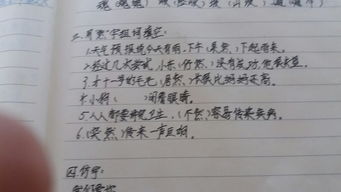 三、用"然"字组词填空:
1.天气预报说今天有雨,下午(果然)下起雨来。
2.经过几次尝试,小东(仍然)没有成功,他很失望。
3.才十一岁的毛毛(居然)长得比妈妈还高。
4.小狗( )闭着眼睛。
5.人人都要讲究卫生,(不然)容易传染疾病。
6.(突然)传来一声巨响。
四.仿写: